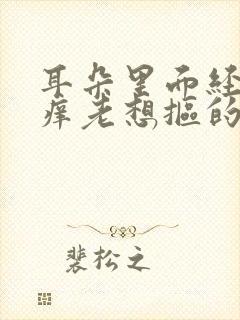 耳朵里面经
痒老想抠的
裴松之